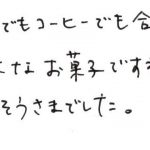 でもコーヒーでも合
なお菓子です
そうさまでした。